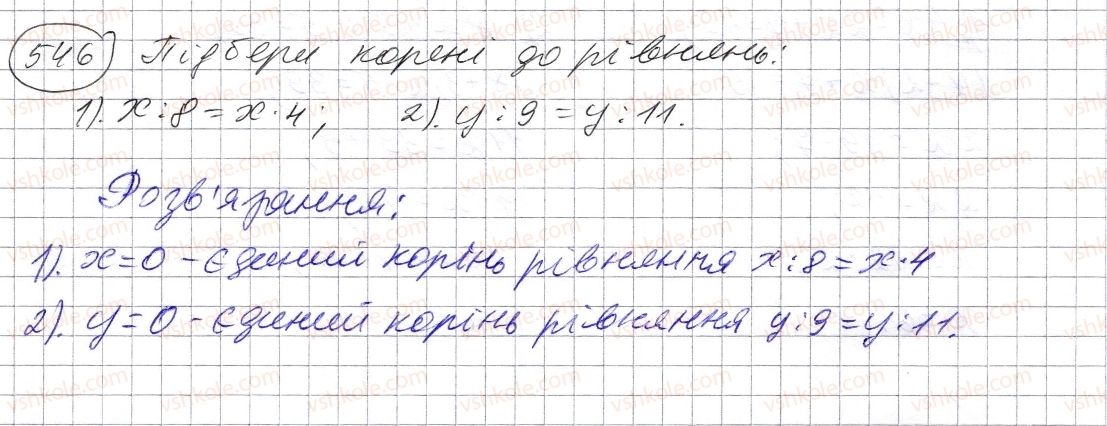 546) Підбери корені до рівнянь:
1). x : 8 = x · 4; 2). y : 9 = y : 11.
Розв'язання:
1). x = 0 - єдиний корінь рівняння x : 8 = x · 4
2). y = 0 - єдиний корінь рівняння y : 9 = y : 11.